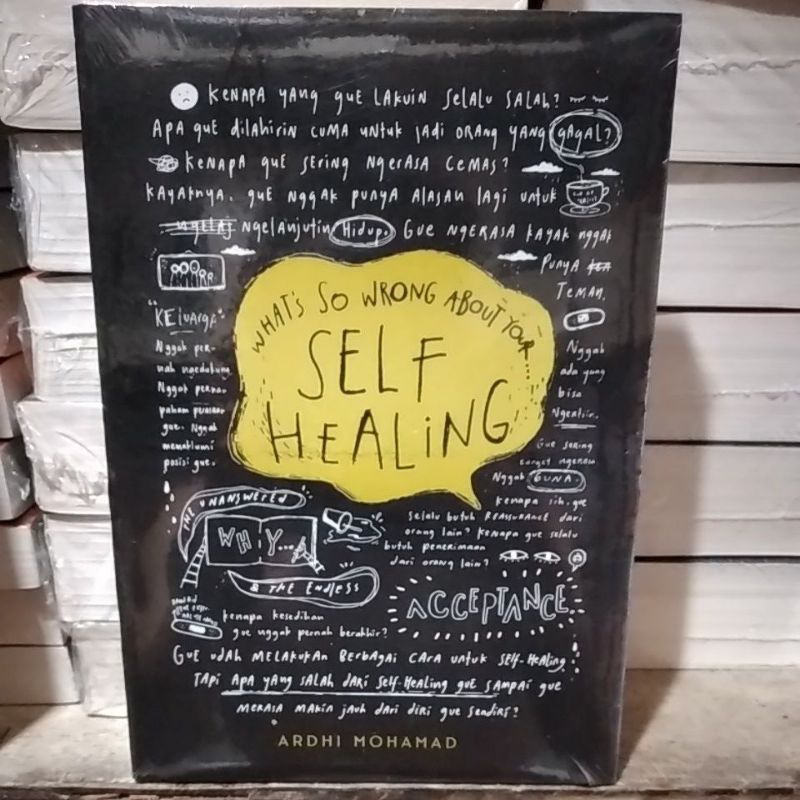 KENAPA YANG GUE LAKUIN SELALU SALAH?
APA GUE DILAHIRIN CUMA UNTUK JADI ORANG YANG GAGAL?
KENAPA GUE SERING NGERASA CEMAS?
KAYAKNYA, GUE NGGAK PUNYA ALASAN LAGI UNTUK
NGELANJUTIN HIDUP. GUE NGERASA KAYAK NGGAK
PUNYA
TEMAN.
"KELUARGA"
Nggak per-
nah ngedukung
Nggak pernah
paham perasaan
gue. Nggak
memaklumi
posisi gue.
WHAT'S SO WRONG ABOUT YOUR
SELF
HEALING
Nggak
ada yang
bisa
Ngertiin.
Gue sering
banget ngerasa
Nggak GUNA.
THE UNANSWERED
WHY...
& THE ENDLESS
kenapa sih, gue
selalu butuh REASSURANCE dari
orang lain? Kenapa gue selalu
butuh penerimaan
dari orang lain?
ACCEPTANCE
kenapa kesedihan
gue nggak pernah berakhir?
GUE UDAH MELAKUKAN BERBAGAI CARA UNTUK SELF-HEALING
TAPI APA YANG SALAH DARI SELF-HEALING GUE SAMPAI GUE
MERASA MAKIN JAUH DARI DIRI GUE SENDIRI?
ARDHI MOHAMAD